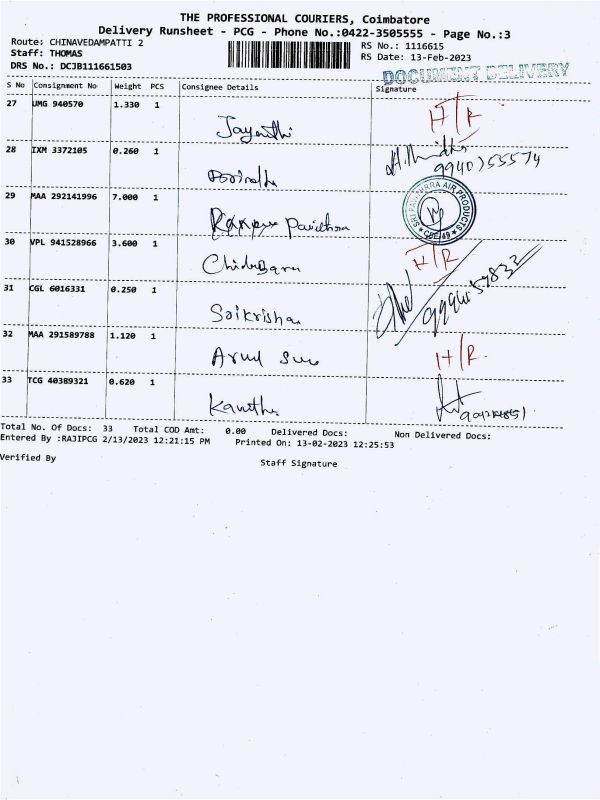 THE PROFESSIONAL COURIERS, Coimbatore
Delivery Runsheet - PCG - Phone No.:0422-3505555 - Page No.:3
Route: CHINAVEDAMPATTI 2
RS No.: 1116615
Staff: THOMAS
RS Date: 13-Feb-2023
DRS No.: DCJB111661503
DOCUMENT DELIVERY
S No Consignment No Weight PCS Consignee Details Signature
27 UMG 940570 1.330 1
Jayanthi H/R
28 IXM 3372105 0.260 1
9940755574
29 MAA 292141996 7.000 1
SRI PANNEERRA AIR PRODUCTS * CBE-49 *
30 VPL 941528966 3.600 1
H/R
31 CGL 6016331 0.250 1
Saikrishna
32 MAA 291589788 1.120 1
Arul H/R
33 TCG 40389321 0.620 1
Total No. Of Docs: 33 Total COD Amt: 0.00 Delivered Docs: Non Delivered Docs:
Entered By :RAJIPCG 2/13/2023 12:21:15 PM Printed On: 13-02-2023 12:25:53
Verified By Staff Signature